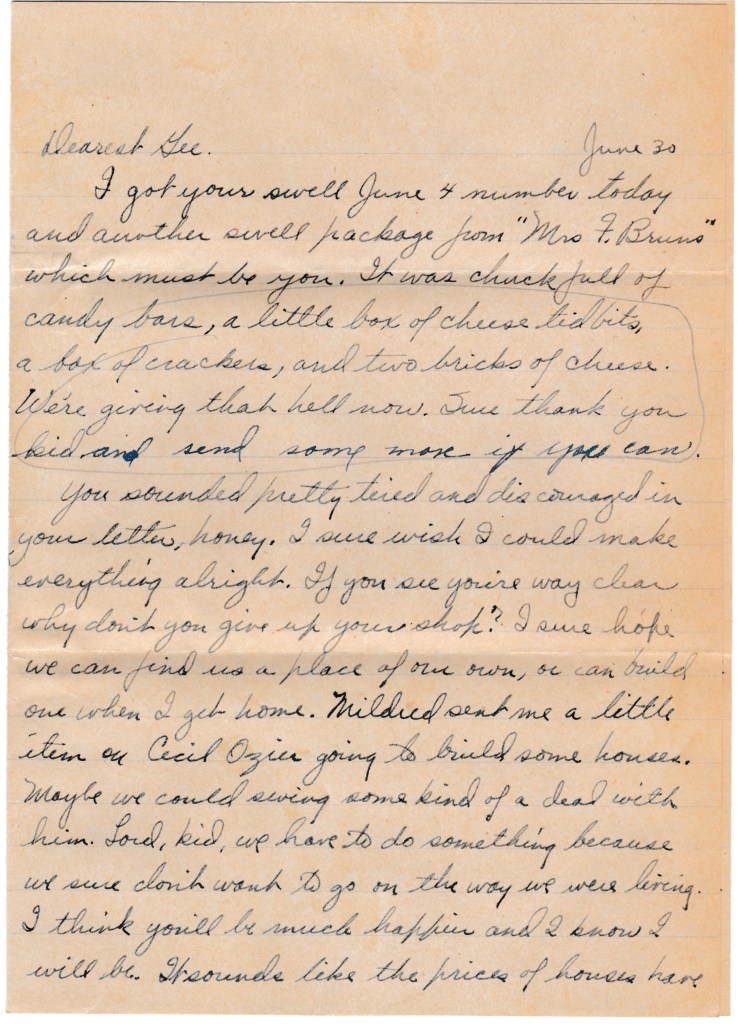 Dearest Gee. June 30
I got your swell June 4 number today
and another swell package from "Mrs F. Bruns"
which must be you. It was chuck full of
candy bars, a little box of cheese tidbits,
a box of crackers, and two bricks of cheese.
We're giving that hell now. Sure thank you
kid and send some more if you can.
You sounded pretty tired and discouraged in
your letter, honey. I sure wish I could make
everything alright. If you see you're way clear
why don't you give up your shop? I sure hope
we can find us a place of our own, or can build
one when I get home. Mildred sent me a little
item on Cecil Ozier going to build some houses.
Maybe we could swing some kind of a deal with
him. Lord, kid, we have to do something because
we sure don't want to go on the way we were living.
I think you'll be much happier and I know I
will be. It sounds like the prices of houses have